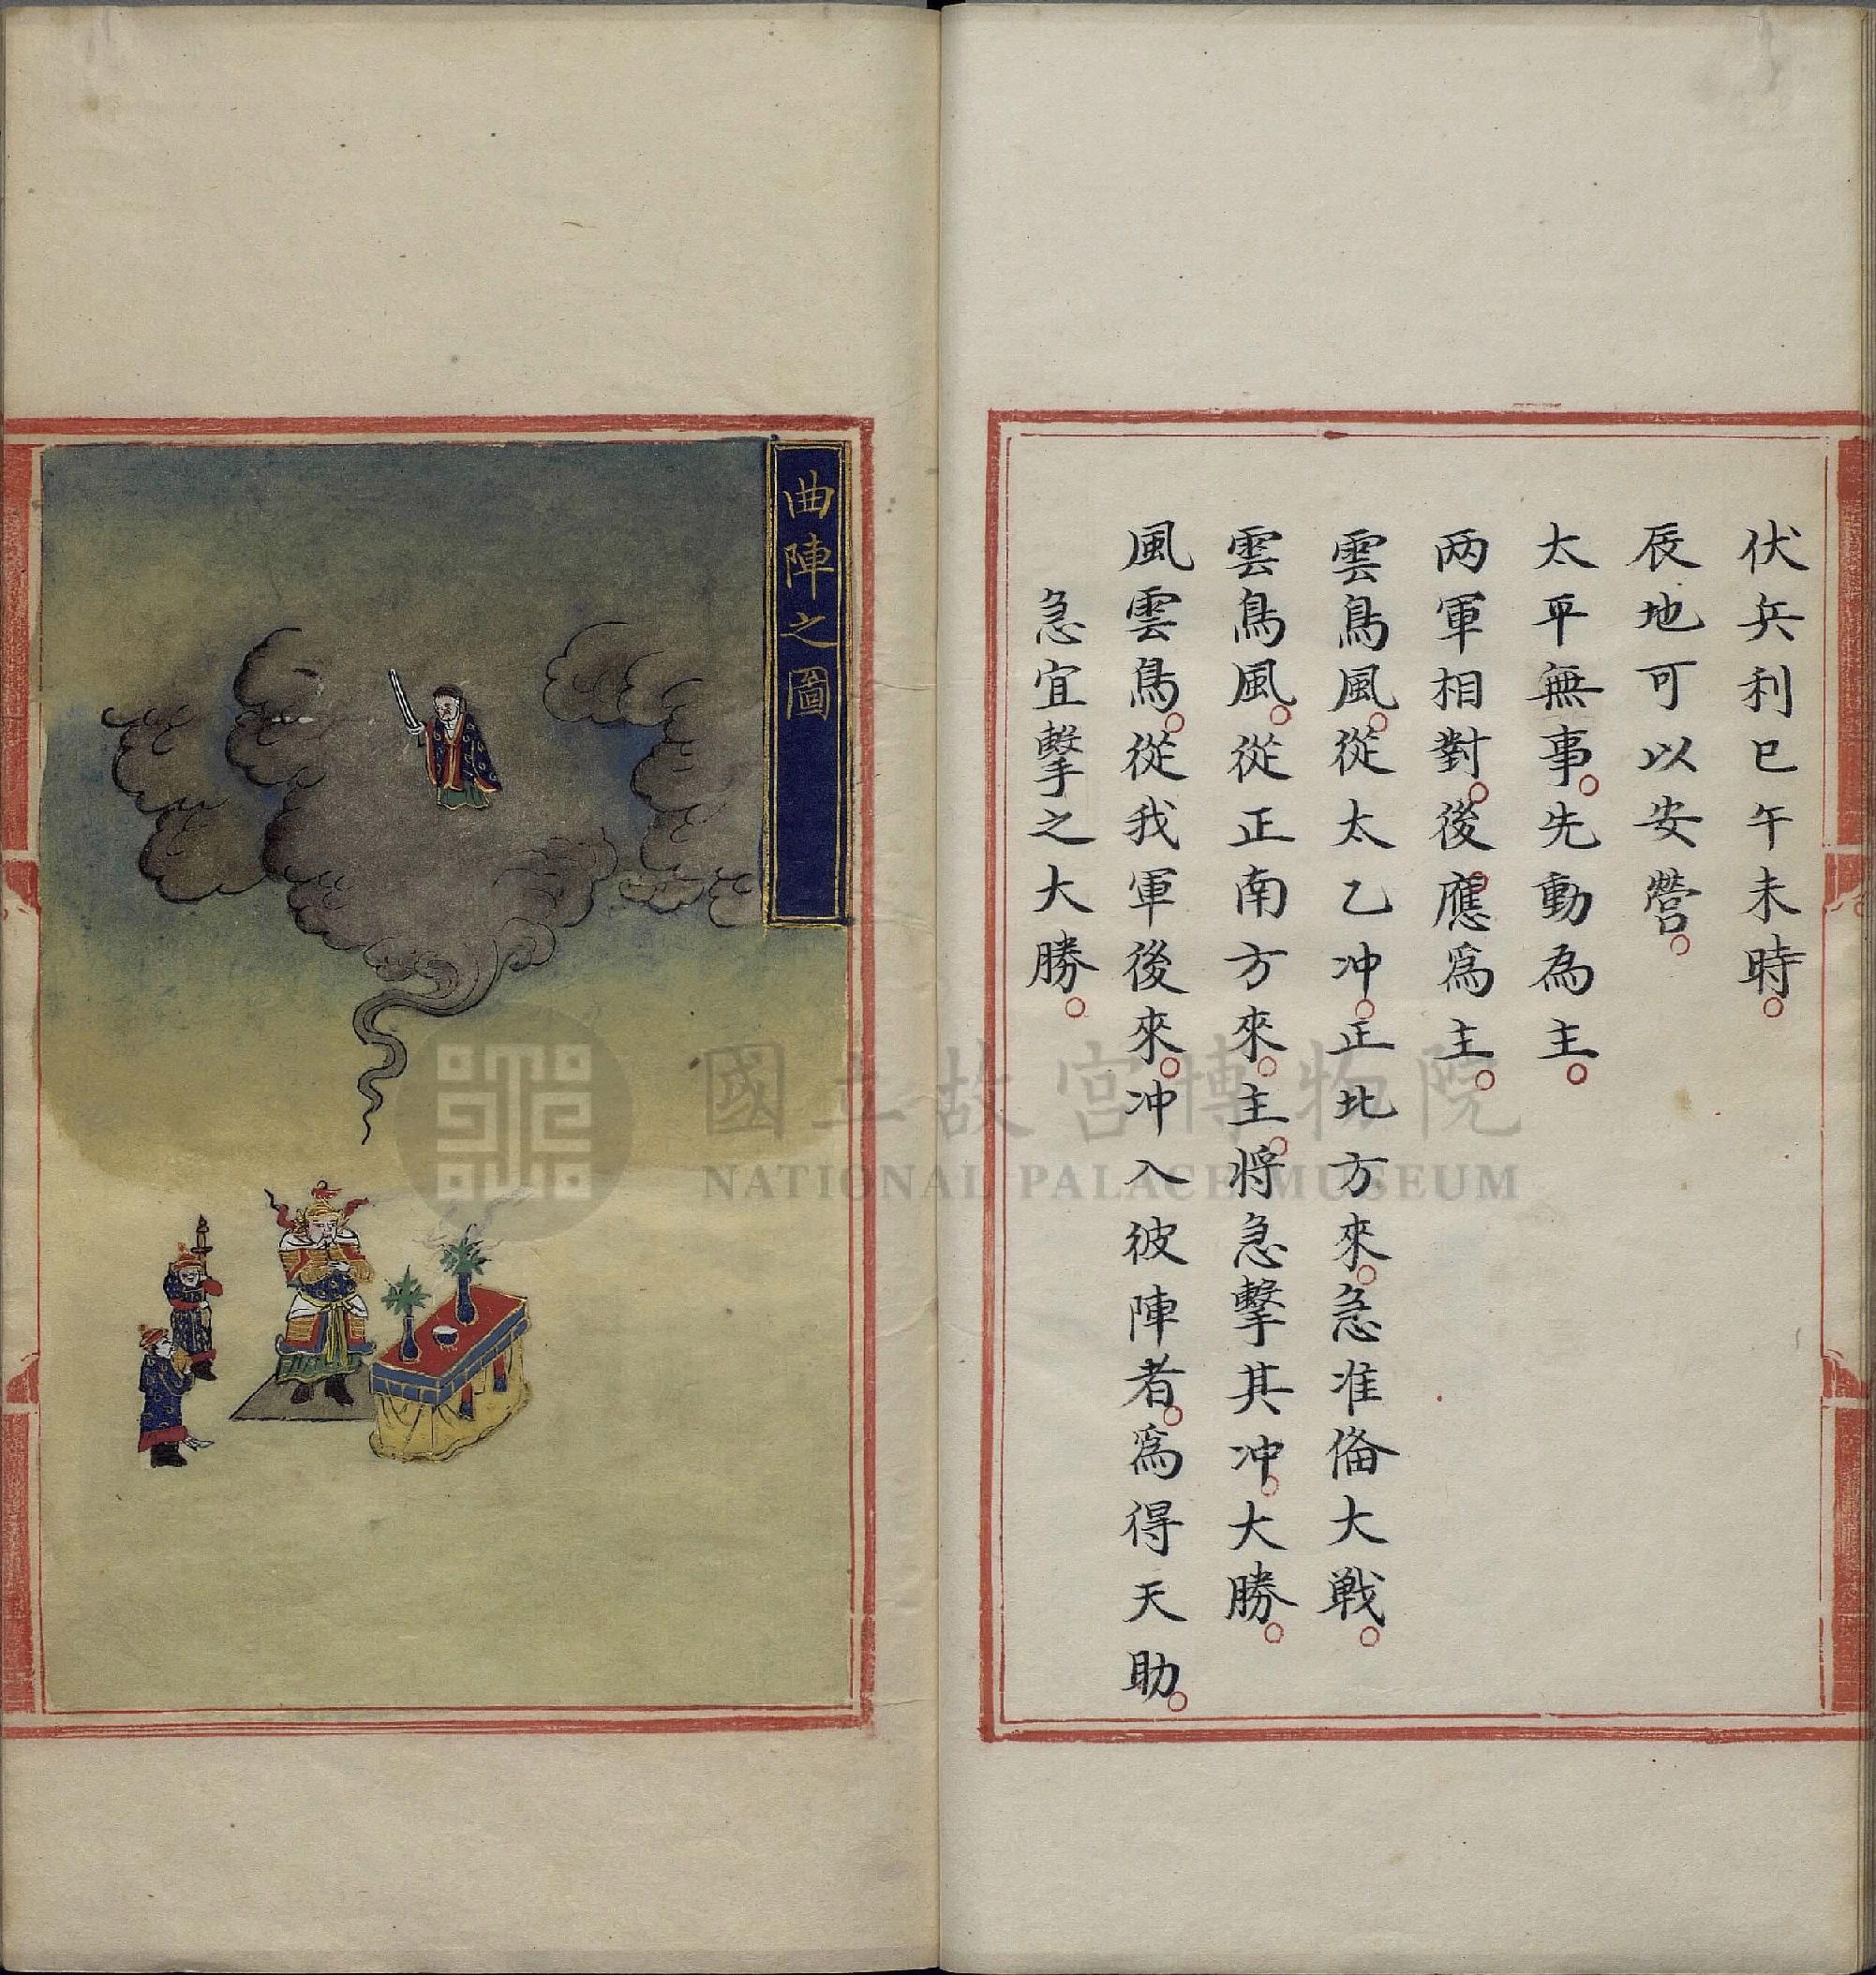 伏兵利巳午未時。
辰地可以安營。
太平無事。先動為主。
两軍相對。後應爲主。
雲鳥風。從太乙冲。正北方來。急准俻大戦。
雲鳥風。從正南方來。主將急擊其冲。大勝。
風雲鳥。從我軍後來。冲入彼陣者。爲得天助。
急宜擊之大勝。
曲陣之圖
國立故宮博物院
NATIONAL PALACE MUSEUM